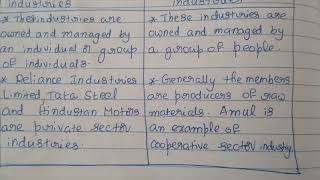 industries
industries
* These industries are
owned and managed by
an individual or group
of individuals.
* Reliance Industries
Limited, Tata Steel
and Hindustan Motors
are private sector
industries.
* These industries are
owned and managed by
a group of people.
* Generally the members
are producers of raw
materials. Amul is
an example of
cooperative sector industry